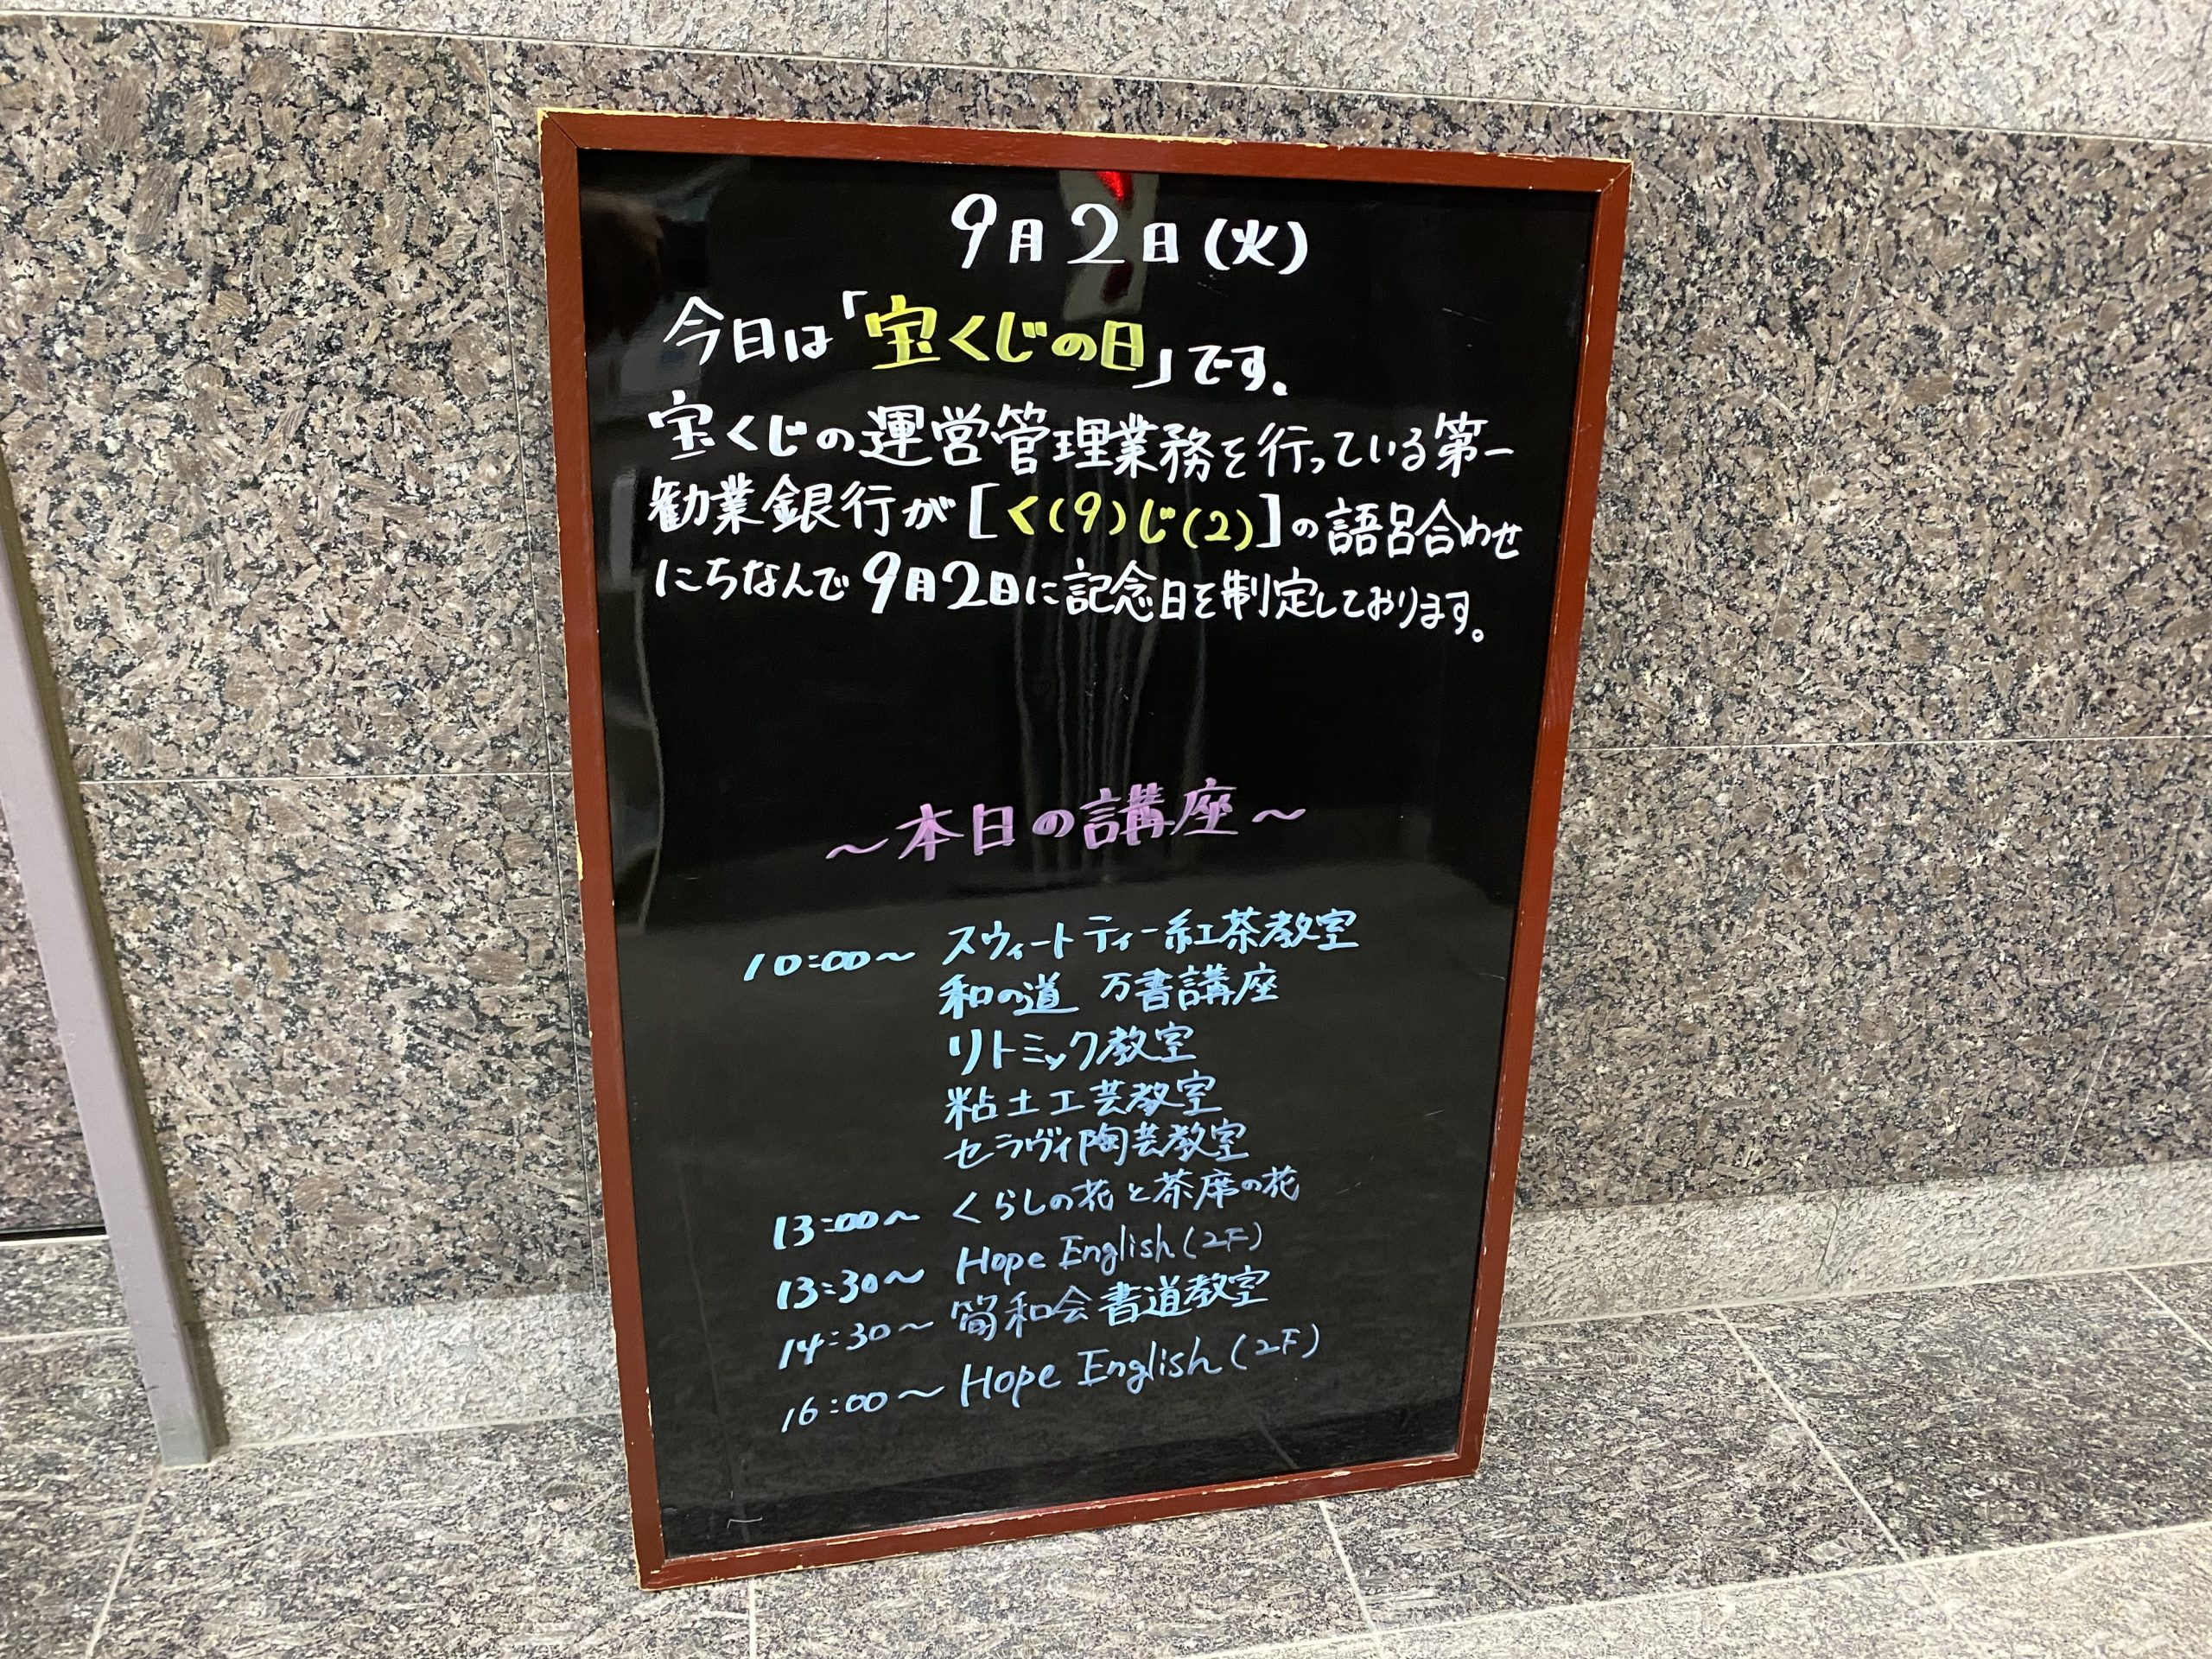 9月2日(火)
今日は「宝くじの日」です。
宝くじの運営管理業務を行っている第一
勧業銀行が[く(9)じ(2)]の語呂合わせ
にちなんで9月2日に記念日を制定しております。
～本日の講座～
10:00～ スウィートティー紅茶教室
和の道 万書講座
リトミック教室
粘土工芸教室
セラヴィ陶芸教室
13:00～ くらしの花と茶席の花
13:30～ Hope English (2F)
14:30～ 簡和会書道教室
16:00～ Hope English (2F)